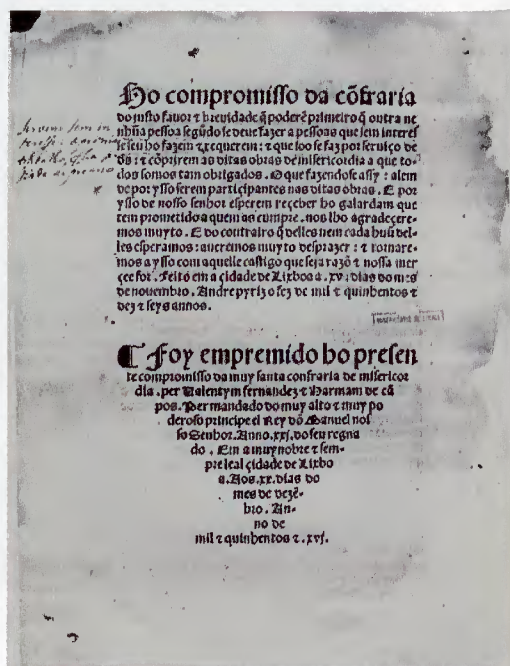 Ho compromisso da cõfraria
do justo fauor ⁊ breuidade q̃ poderẽ primeiro q̃ outra ne
nhũa pessoa segũdo se deue fazer a pessoas que sem interes
se seu ho fazem ⁊ requerem: ⁊ que soo se faz por seruiço de
ds̃: ⁊ cõprirem as ditas obras de misericordia a que to-
dos somos tam obrigados. O que fazendose assy: alem
de por ysso serem participantes nas ditas obras. E por
ysso de nosso senhor esperem reçeber ho galardam que
tem prometido a quem as cumpre. nos lho agradeçere-
mos muyto. E do contrairo q̃ delles nem cada huũ del-
les esperamos: aueremos muyto desprazer: ⁊ tornare-
mos a ysso com aquelle castigo que seja razõ ⁊ nossa mer
çee for. Feito em a çidade de Lixboa a. xv: dias do mes
de nouembro. Andre pyriz o fez de mil ⁊ quinhentos ⁊
dez ⁊ seys annos.
¶ Foy empremido ho presen
te compromisso da muy santa confraria de misericor
dia. per Ualentym fernandez ⁊ Harmam de cã
pos. Per mandado do muy alto ⁊ muy po
deroso principe el Rey dõ Manuel nos
so Senhor. Anno. xxj. do seu regna
do. Em a muy nobre ⁊ sem-
pre leal çidade de Lixbo
a. Aos. xx. dias do
mes de dezẽ-
bro. An-
no de
mil ⁊ quinhentos ⁊. xvj.